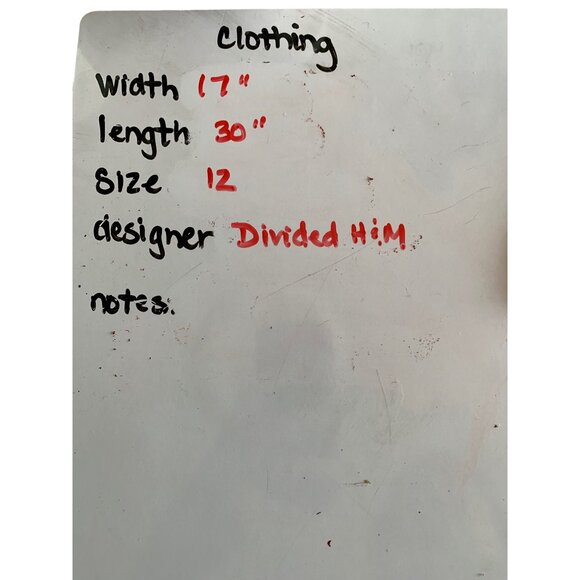 Clothing
Width 17"
length 30"
Size 12
designer Divided H&M
notes.